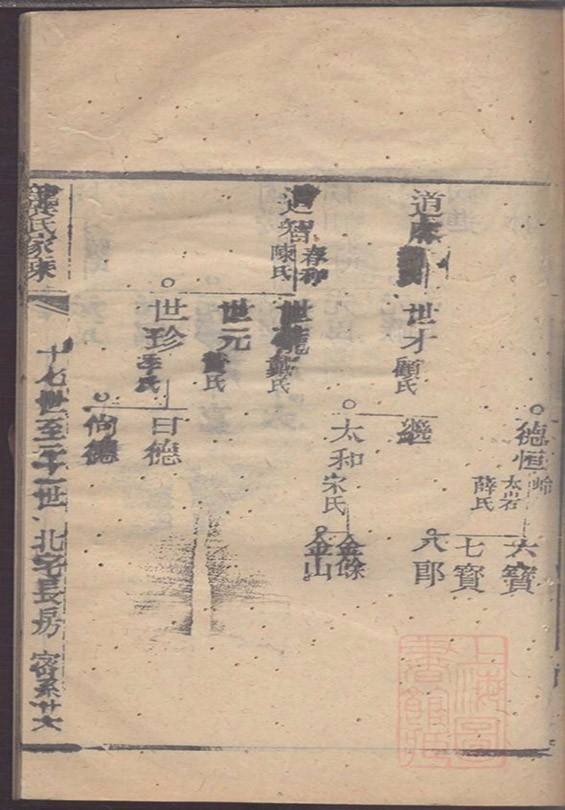 德恒
太岩
薛氏
六寶
七寶
八郎
道康
世才
顧氏
繼
太和
宋氏
金條
金山
道智
春和
陳氏
世龍
戴氏
世元
世珍
李氏
日德
尚德
龔氏家乘
十七世至二十一世 北宅長房
上海圖書館藏